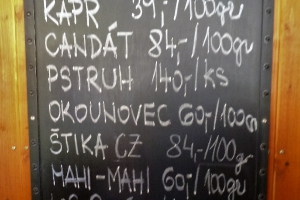 KAPR 39,-/100gr
CANDÁT 84,-/100gr
PSTRUH 140,-/KS
OKOUNOVEC 60,-/100G
ŠTIKA CZ 84,-/100gr
MAHI-MAHI 60,-/100gr